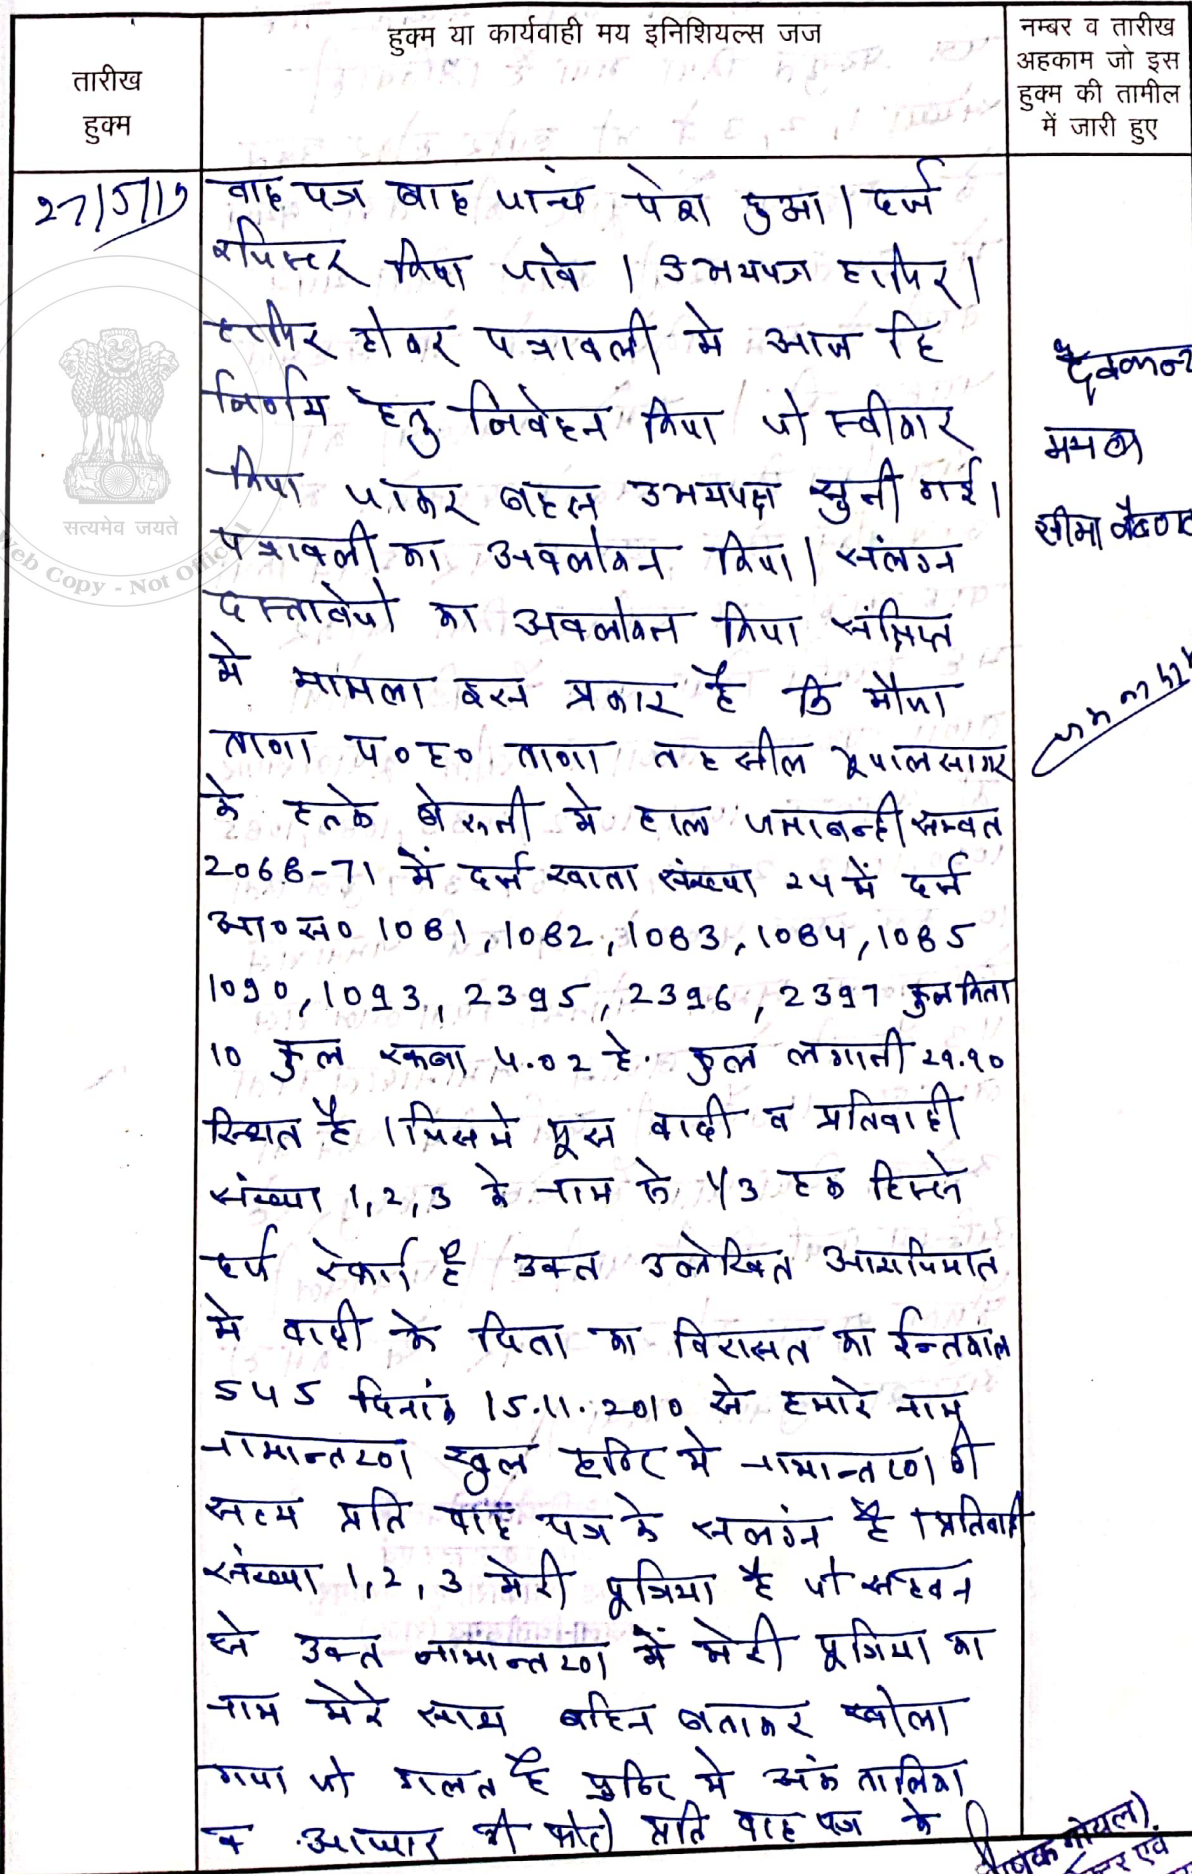 तारीख
हुक्म
हुक्म या कार्यवाही मय इनिशियल्स जज
नम्बर व तारीख
अहकाम जो इस
हुक्म की तामील
में जारी हुए
27/5/19
वाद पत्र बाद जांच पेश हुआ। दर्ज
रजिस्टर किया जावे । उभयपक्ष हाजिर।
हाजिर होकर पत्रावली मे आज हि
निर्णय हेतु निवेदन किया जो स्वीकार
किया जाकर बहस उभयपक्ष सुनी गई।
पत्रावली का अवलोकन किया। संलग्न
दस्तावेजो का अवलोकन किया संक्षिप्त
मे मामला इस प्रकार है कि मौजा
ताणा प०ह० ताणा तहसील भूपालसागर
के हल्के बेरुनी मे हाल जमाबन्दी सम्वत
2068-71 में दर्ज खाता संख्या 24 में दर्ज
आ०स० 1081, 1082, 1083, 1084, 1085
1090, 1093, 2395, 2396, 2397 कुल किता
10 कुल रकबा 4.02 हे. कुल लगानी 29.90
स्थित है । जिसमे मूझ वादी व प्रतिवादी
संख्या 1,2,3 के नाम के 1/3 हक हिस्से
दर्ज रेकार्ड है उक्त उल्लेखित आराजियात
मे वादी के पिता का विरासत का ईन्तकाल
545 दिनांक 15.11.2010 से हमारे नाम
नामान्तरण खुला नामान्तरण की
सत्य प्रति वाद पत्र के सलंग्न है । प्रतिवादी
संख्या 1,2,3 मेरी पूत्रिया है जो सहवन
से उक्त नामान्तरण में मेरी पूत्रिया का
नाम मेरे साथ बहिन बताकर खोला
गया जो गलत है पुष्टि मे अंक तालिका
व आधार की फोटो प्रति वाद पत्र के
ममता
सीमा वैष्णव
सत्यमेव जयते
Web Copy - Not Official
गोयल)